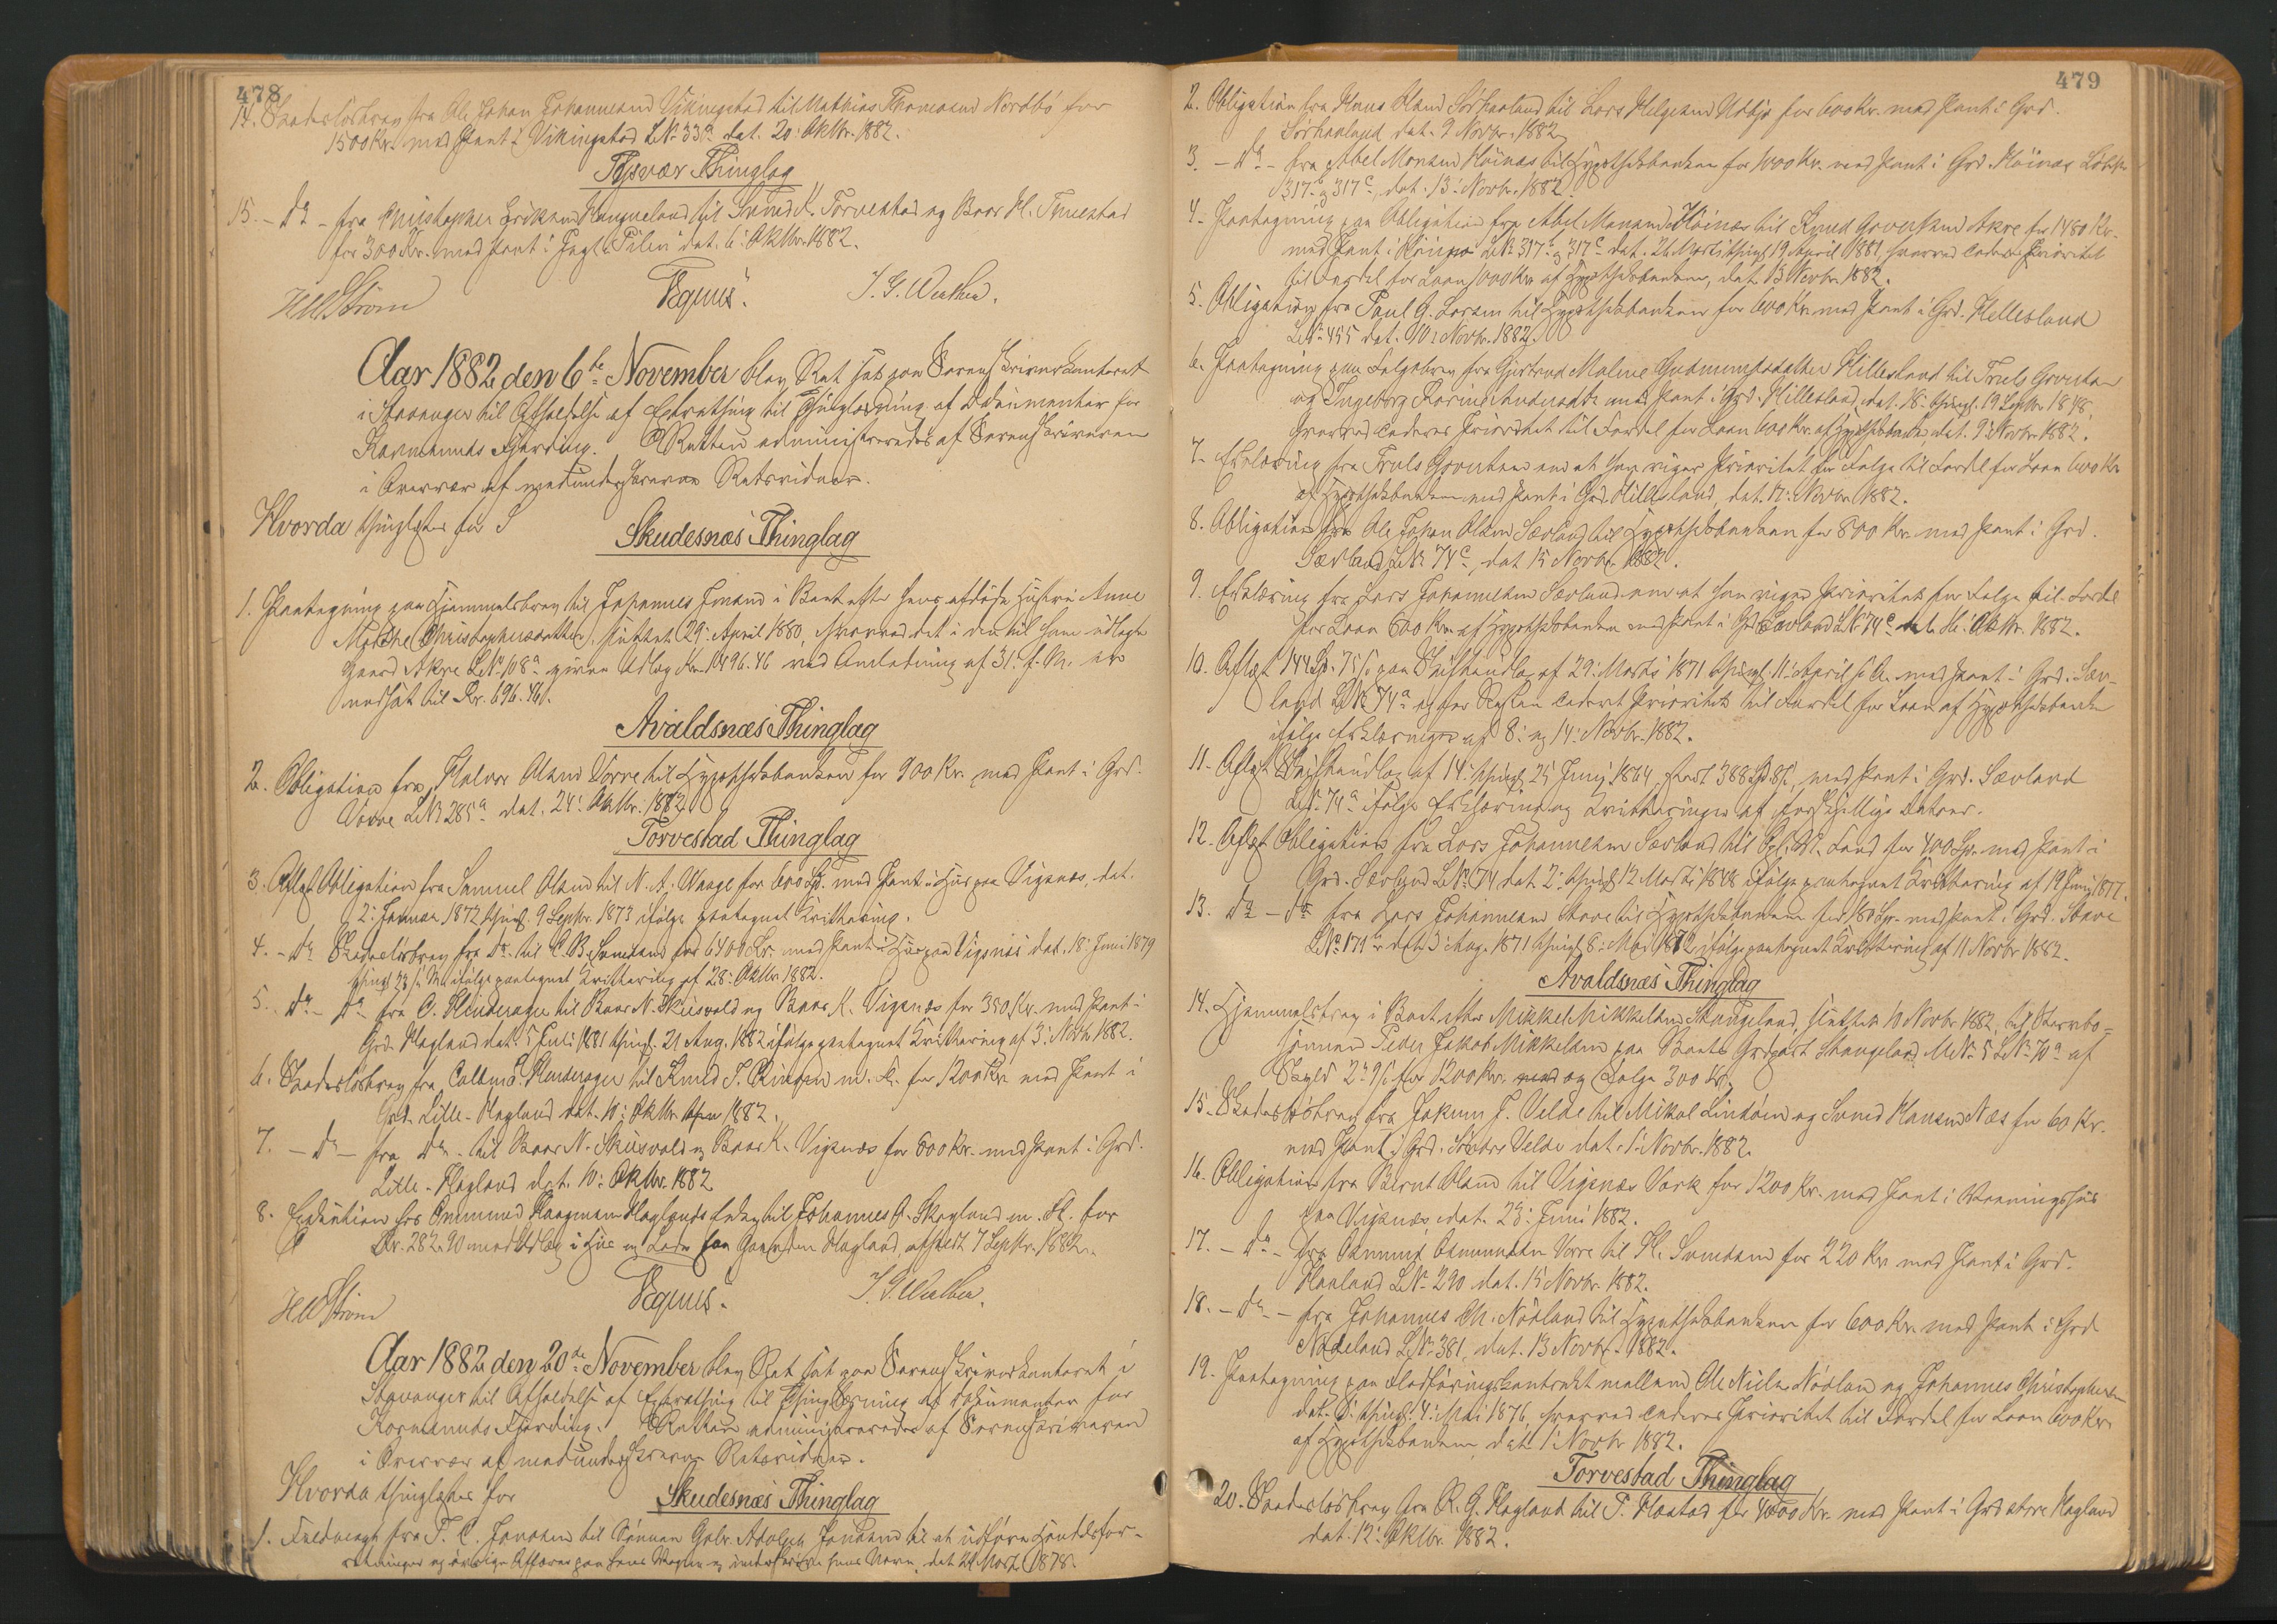 478
14. Skadesløsbrev fra Ole Johan Johannesen Vikingstad til Mathias Thomasen Nordbö for
1500 Kr. med Pant i Vikingstad LNr 33a dat. 20: Oktbr. 1882.
Tysvær Thinglag
15. - do - fra Christopher Eriksen til Svend K. Torvestad og Baar H.
for 300 Kr. med Pant i Jagt "Pilen" dat. 6: Oktbr. 1882.
Strøm
J. G.
Aar 1882 den 6te November blev Ret sat paa Sorenskriverkontoret
i Stavanger til Afholdelse af Extrathing til Thinglæsning af Dokumenter for
Karmsunds Fjerding. Retten administreredes af Sorenskriveren
i Overvær af medunderskrevne Retsvidner.
Hvorda thinglæstes for
Skudesnæs Thinglag
1. Paategning paa Hjemmelsbrev til Johannes i Boet efter hans afdøde Hustru Anne
Marthe Christophersdatter, sluttet 29: April 1880, hvorved det i den til ham udlagte
Gaard Akre LNr 108a givne Udlæg Kr. 1496.46 ved Anledning af 31: f. M. er
nedsat til Kr. 696.46.
Avaldsnæs Thinglag
2. Obligation fra Halvor Olsen Vorre til Hypothekbanken for 900 Kr. med Pant i Grd.
Vorre LNr 285a dat. 24: Oktbr. 1882.
Torvestad Thinglag
3. Aflyst Obligation fra Samuel Olsen til N. A. Waage for 600 Sp. med Pant i Hus paa Vigsnæs, dat.
2: Januar 1872 thingl. 9 Septbr. 1873 ifølge paategnet Kvittering.
4. - do Skadesløsbrev fra do til C. B. Svendsen for 6400 Kr. med Pant i Hus paa Vigsnæs dat. 18: Juni 1879
thingl. 23 s. M. ifølge paategnet Kvittering af 28: Oktbr. 1882.
5. do - do fra O. Henderager til Baar N. Skeisvold og Baar K. Vigsnæs for 350 Kr. med Pant i
Grd. Hagland dat. 5 Juli 1881 thingl. 21 Aug. 1882 ifølge paategnet Kvittering af 3: Novbr. 1882.
6. Skadesløsbrev fra Henderager til Knud J. Ringen m. fl. for 1200 Kr. med Pant i
Grd. Lille-Hagland dat. 10: Oktbr. 1882.
7. - do - fra do - til Baar N. Skeisvold og Baar K. Vigsnæs for 600 Kr. med Pant i Grd.
Lille-Hagland dat. 10: Oktbr. 1882.
8. Exekution hos Ommund Haagensen Haglands Enke til Johannes G. Skogland m. fl. for
Kr. 282.90 med Udlæg i Hus og Løsøre paa Gaarden Hagland, afholdt 7 Septbr. 1882.
Strøm
J. G.
Aar 1882 den 20de November blev Ret sat paa Sorenskriverkontoret i
Stavanger til Afholdelse af Extrathing til Thinglæsning af Dokumenter for
Karmsunds Fjerding. Retten administreredes af Sorenskriveren
i Overvær af medunderskrevne Retsvidner.
Hvorda thinglæstes for
Skudesnæs Thinglag
1. Fuldmagt fra J. C. Jonassen til Sønnen Gabr. Adolph Jonassen til at udføre Handelsfor-
retninger og øvrige Affærer paa hans Vegne og underskrive hans Navn, dat. Marts 1878.
479
2. Obligation fra Hans Olsen Sørhaaland til Lars Helgesen Udbjø for 600 Kr. med Pant i Grd.
Sørhaaland dat. 9 Novbr. 1882.
3. - do - fra Abel Monsen Höinæs til Hypothekbanken for 1000 Kr. med Pant i Grd. Höinæs LNr
317b og 317c, dat. 13: Novbr. 1882.
4. Paategning paa Obligation fra Abel Monsen Höinæs til Knud Akre for 1480 Kr.
med Pant i Höinæs LNr 317b og 317c dat. 26 Marts thingl. 19 April 1881, hvorved cederes Prioritet
til Fordel for Laan 1000 Kr. af Hypothekbanken, dat. 13 Novbr. 1882.
5. Obligation fra Paul G. Larsen til Hypothekbanken for 600 Kr. med Pant i Grd. Hillesland
LNr 455 dat. 10: Novbr. 1882.
6. Paategning paa Følgebrev fra Gjertrud Malene Gudmundsdatter Hillesland til Truls
og Ingeborg Karine med Pant i Grd. Hillesland, dat. 18: thingl. 19 Septbr. 1848,
hvorved cederes Prioritet til Fordel for Laan 600 Kr. af Hypothekbanken, dat. 9: Novbr. 1882.
7. Erklæring fra Truls om at han viger Prioritet for Følge til Fordel for Laan 600 Kr
af Hypothekbanken med Pant i Grd. Hillesland, dat. 11: Novbr. 1882.
8. Obligation fra Ole Johan Olsen Sævland til Hypothekbanken for 800 Kr. med Pant i Grd.
Sævland LNr 74c, dat. 15 Novbr. 1882.
9. Erklæring fra Lars Johannessen Sævland om at han viger Prioritet for Følge til Fordel
for Laan 600 Kr. af Hypothekbanken med Pant i Grd. Sævland LNr 74c Oktbr. 1882.
10. Aflyst 144 Sp. 75 s. paa Skifteudlæg af 29: Marts 1871 thingl. 11: April s. A. med Pant i Grd. Sæv-
land LNr 74a og for Resten cederet Prioritet til Fordel for Laan af Hypothekbanken
ifølge Erklæringer af 8: og 14: Novbr. 1882.
11. Aflyst Skifteudlæg af 14: thingl. 25 Juni 1864, stort 388 Sp. 8 s., med Pant i Grd. Sævland
LNr 74a ifølge Erklæring og Kvitteringer af forskjellige Datoer.
12. Aflyst Obligation fra Lars Johannessen Sævland til Lund for 400 Sp. med Pant i
Grd. Sævland LNr 74 dat. 2: thingl. 12 Marts 1848 ifølge paategnet Kvittering af 19 Juni 1877.
13. do - do fra Lars Johannessen Stave til Hypothekbanken for 180 Sp. med Pant i Grd. Stave
LNr 171a dat. 3: Aug. 1871 thingl. 8: Mai 1872 ifølge paategnet Kvittering af 11 Novbr. 1882.
Avaldsnæs Thinglag
14. Hjemmelsbrev i Boet efter Mikkel Mikkelsen Stangeland, sluttet 10 Novbr. 1882, til Stervbo-
sønnen Peder Jakob Mikkelsen paa Boets Grdpart Stangeland MNr 5 LNr 70a af
Skyld 2 9 s. for 1200 Kr. og Følge 300 Kr.
15. Skadesløsbrev fra Jakum J. Velde til Mikal Lindøen og Svend Hansen Næs for 60 Kr.
med Pant i Grd. Søndre Velde dat. 1: Novbr. 1882.
16. Obligation fra Bernt Olsen til Vigsnæs Værk for 1200 Kr. med Pant i Vaaningshus
paa Vigsnæs, dat. 23: Juni 1882.
17. - do - fra Osmund Osmundsen Vorre til H. Svendsen for 220 Kr. med Pant i Grd.
Haaland LNr 290 dat. 15 Novbr. 1882.
18. - do - fra Johannes Ch. Nödland til Hypothekbanken for 600 Kr. med Pant i Grd
Nödeland LNr 381, dat. 13 Novbr. 1882.
19. Paategning paa Fladføringskontrakt mellem Ole Nilsen Nödland og Johannes Christophersen
dat. 3: thingl. 4: Mai 1876, hvorved cederes Prioritet til Fordel for Laan 600 Kr.
af Hypothekbanken dat. 1: Novbr. 1882.
Torvestad Thinglag
20. Skadesløsbrev fra R. G. Hagland til P. for 4000 Kr. med Pant i Grd store Hagland
dat. 12: Oktbr. 1882.